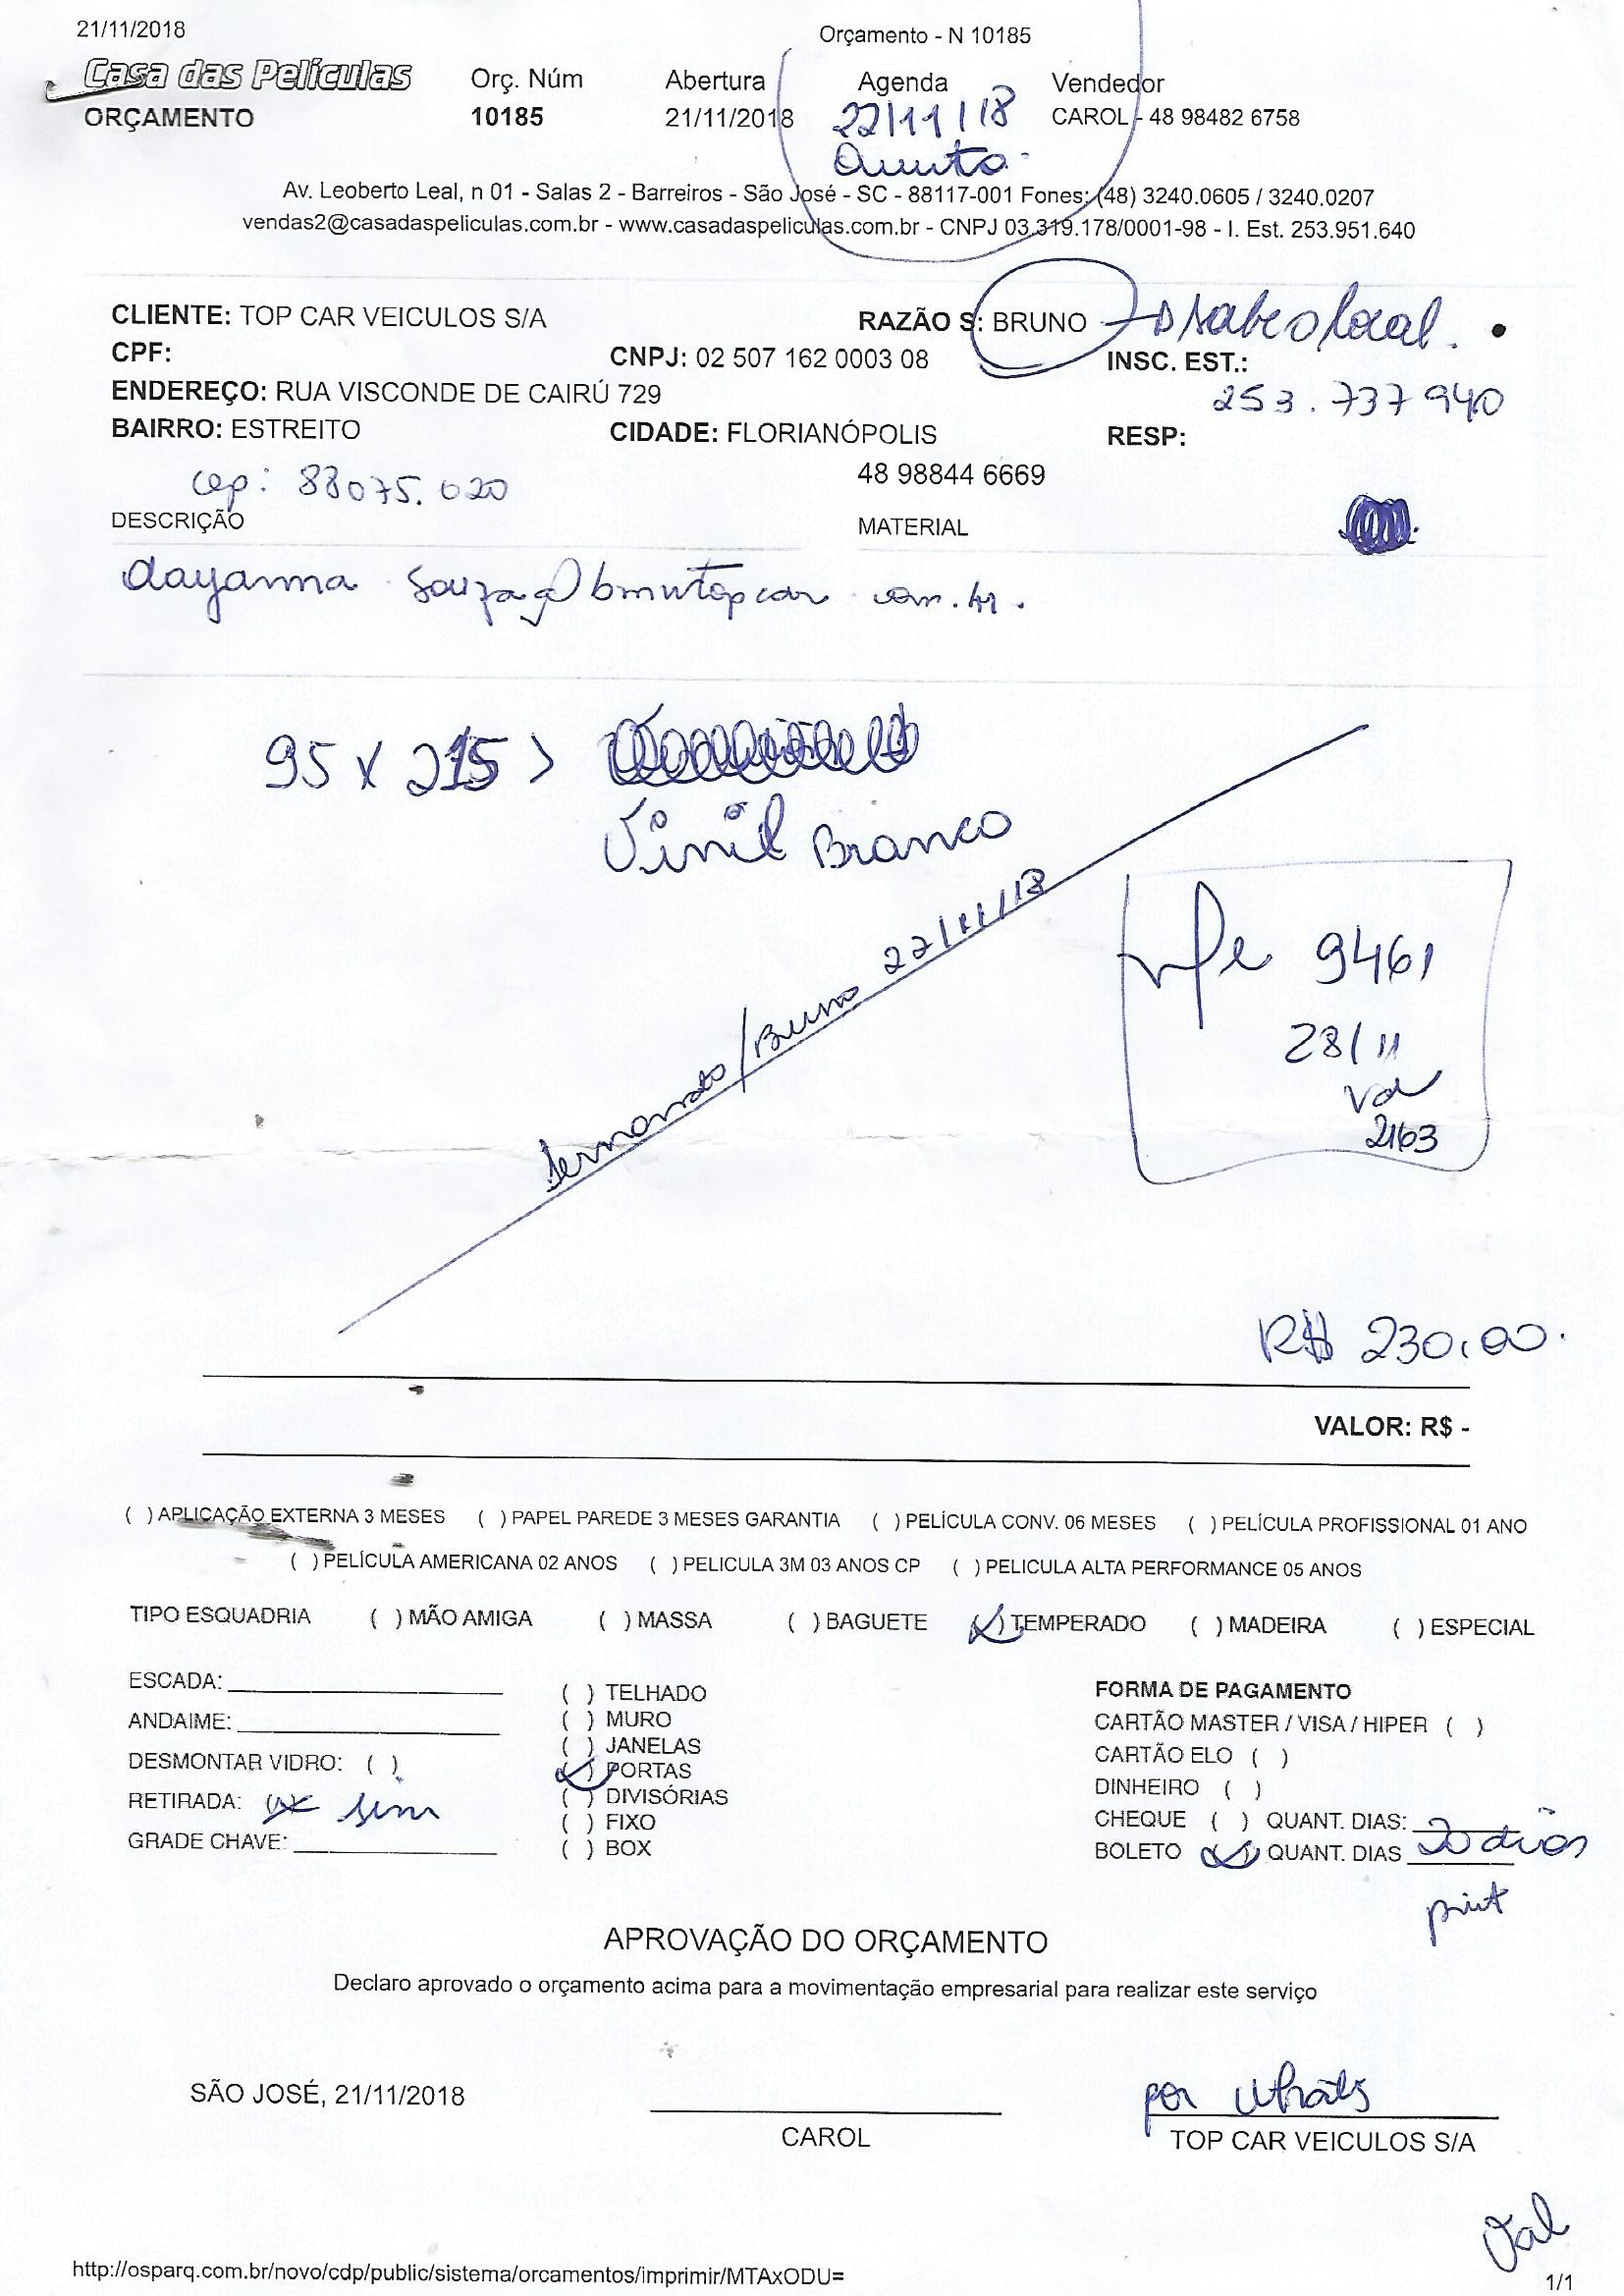 21/11/2018 Orçamento - N 10185
Casa das Películas Orç. Núm Abertura Agenda Vendedor
ORÇAMENTO 10185 21/11/2018 22/11/18 CAROL - 48 98482 6758
Quinta
Av. Leoberto Leal, n 01 - Salas 2 - Barreiros - São José - SC - 88117-001 Fones: (48) 3240.0605 / 3240.0207
vendas2@casadaspeliculas.com.br - www.casadaspeliculas.com.br - CNPJ 03.319.178/0001-98 - I. Est. 253.951.640
CLIENTE: TOP CAR VEICULOS S/A RAZÃO S: BRUNO sabe o local.
CPF: CNPJ: 02 507 162 0003 08 INSC. EST.:
ENDEREÇO: RUA VISCONDE DE CAIRÚ 729 253.737 940
BAIRRO: ESTREITO CIDADE: FLORIANÓPOLIS RESP:
cep: 88075.020 48 98844 6669
DESCRIÇÃO MATERIAL
dayanna.souza@bmwtopcar.com.br.
95 x 215 >
Vinil Branco
Fernando/Bruno 22/11/18
nfe 9461
28/11
Val
2163
R$ 230,00.
VALOR: R$ -
( ) APLICAÇÃO EXTERNA 3 MESES ( ) PAPEL PAREDE 3 MESES GARANTIA ( ) PELÍCULA CONV. 06 MESES ( ) PELÍCULA PROFISSIONAL 01 ANO
( ) PELÍCULA AMERICANA 02 ANOS ( ) PELICULA 3M 03 ANOS CP ( ) PELICULA ALTA PERFORMANCE 05 ANOS
TIPO ESQUADRIA ( ) MÃO AMIGA ( ) MASSA ( ) BAGUETE (✓) TEMPERADO ( ) MADEIRA ( ) ESPECIAL
ESCADA: ( ) TELHADO FORMA DE PAGAMENTO
ANDAIME: ( ) MURO CARTÃO MASTER / VISA / HIPER ( )
( ) JANELAS CARTÃO ELO ( )
DESMONTAR VIDRO: ( ) (✓) PORTAS DINHEIRO ( )
RETIRADA: (x) sim ( ) DIVISÓRIAS CHEQUE ( ) QUANT. DIAS:
GRADE CHAVE: ( ) FIXO BOLETO (✓) QUANT. DIAS 20 dias
( ) BOX
APROVAÇÃO DO ORÇAMENTO
Declaro aprovado o orçamento acima para a movimentação empresarial para realizar este serviço
SÃO JOSÉ, 21/11/2018 por Whats
CAROL TOP CAR VEICULOS S/A
Val
http://osparq.com.br/novo/cdp/public/sistema/orcamentos/imprimir/MTAxODU= 1/1